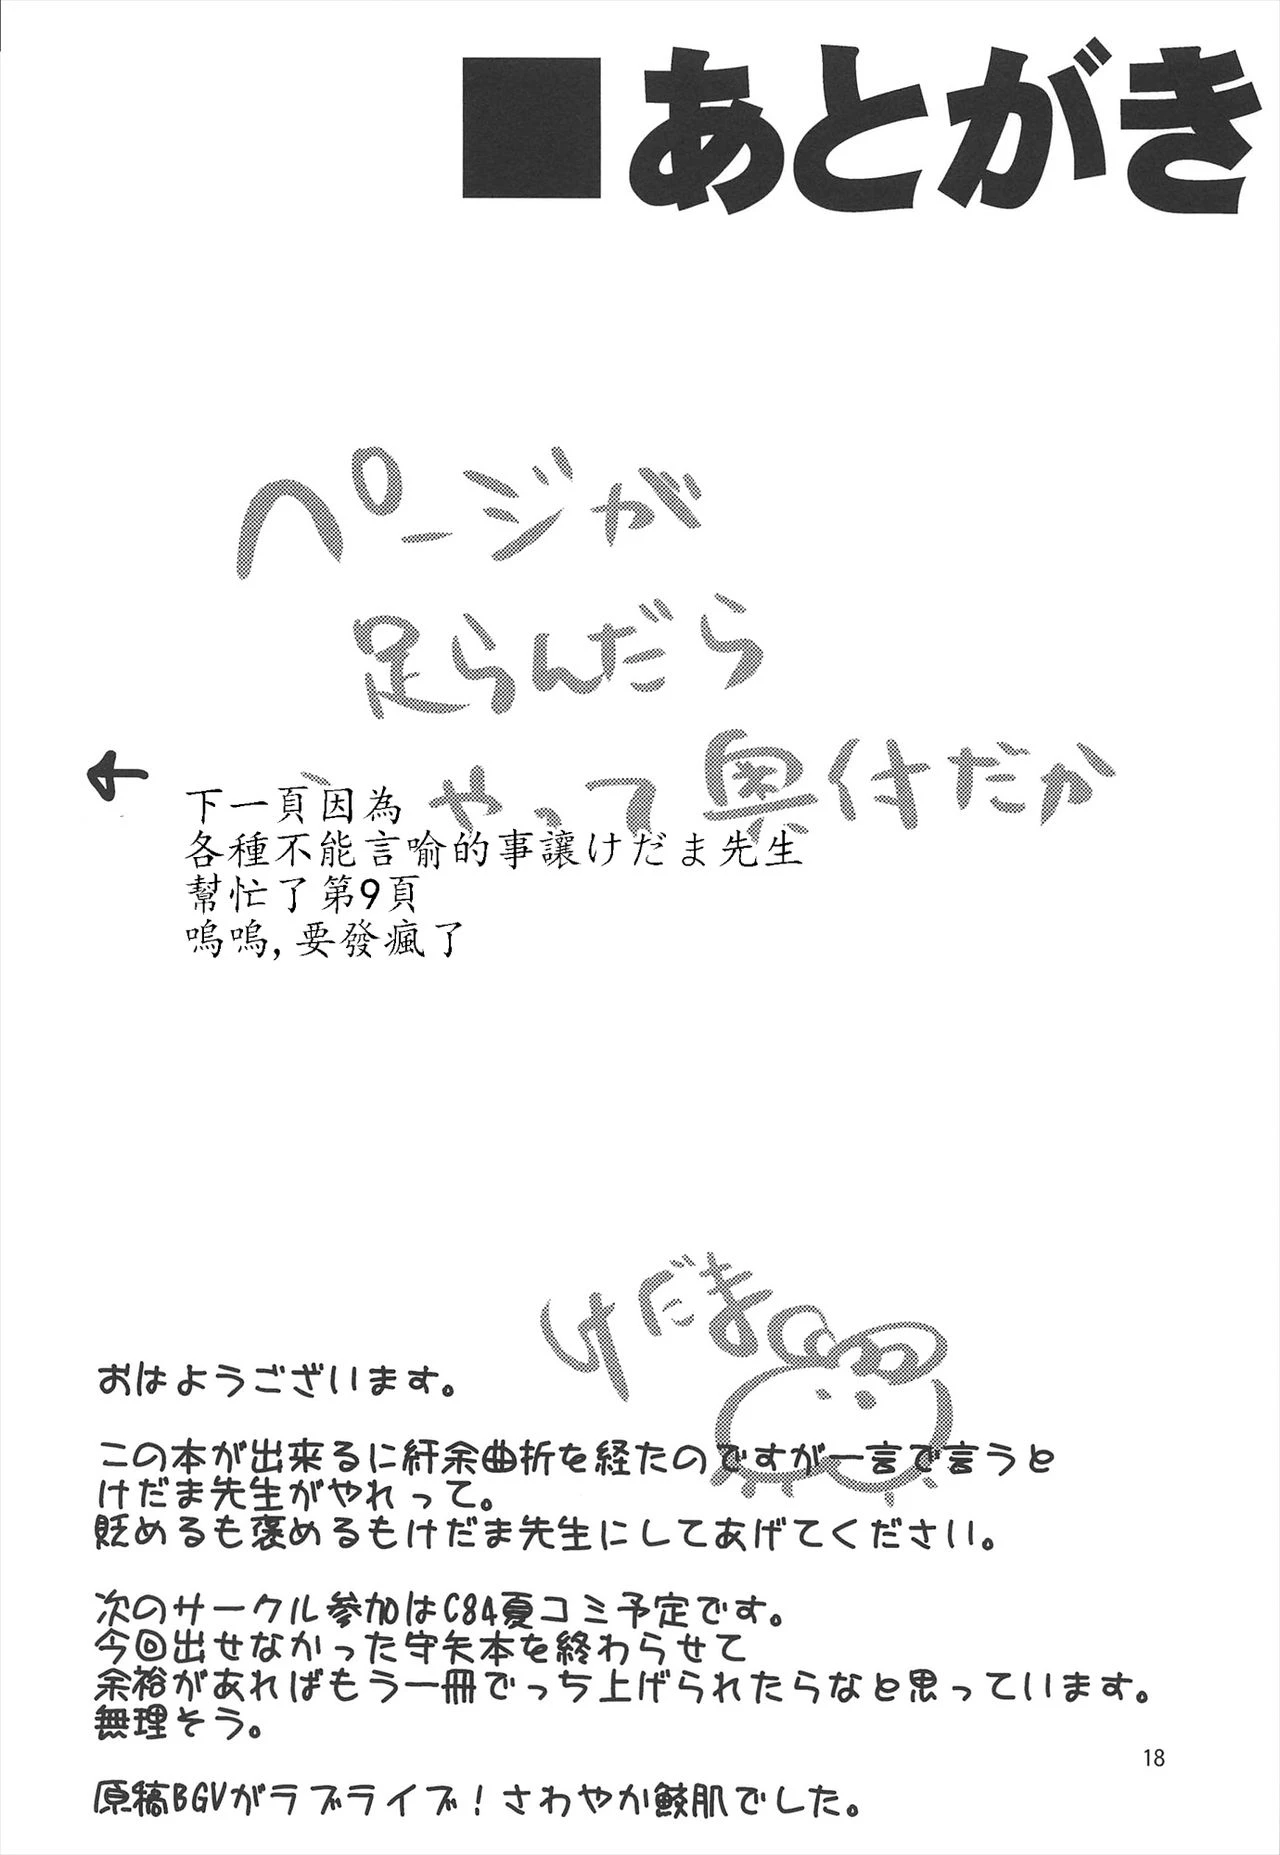 ■あとがき
ページが
足らんだら
やって奥付だか
下一頁因為
各種不能言喻的事讓けだま先生
幫忙了第9頁
嗚嗚,要發瘋了
けだま
おはようございます。
この本が出来るに紆余曲折を経たのですが一言で言うと
けだま先生がやれって。
貶めるも褒めるもけだま先生にしてあげてください。
次のサークル参加はC84夏コミ予定です。
今回出せなかった守矢本を終わらせて
余裕があればもう一冊でっち上げられたらなと思っています。
無理そう。
原稿BGVがラブライブ!さわやか鮫肌でした。
18